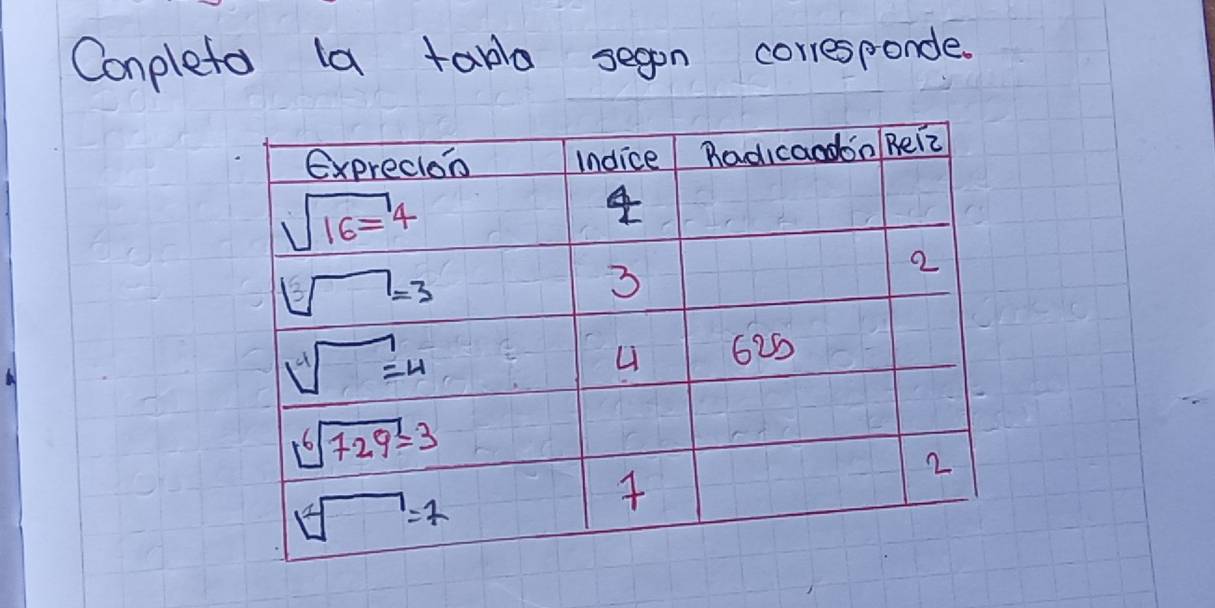 Conpleta la tabla segun corresponde.
Expreción Indice Radicandón Reíz
√16=4 4
3√ =3 3 2
4√ =4 4 625
6√729=3
7√ =7 7 2